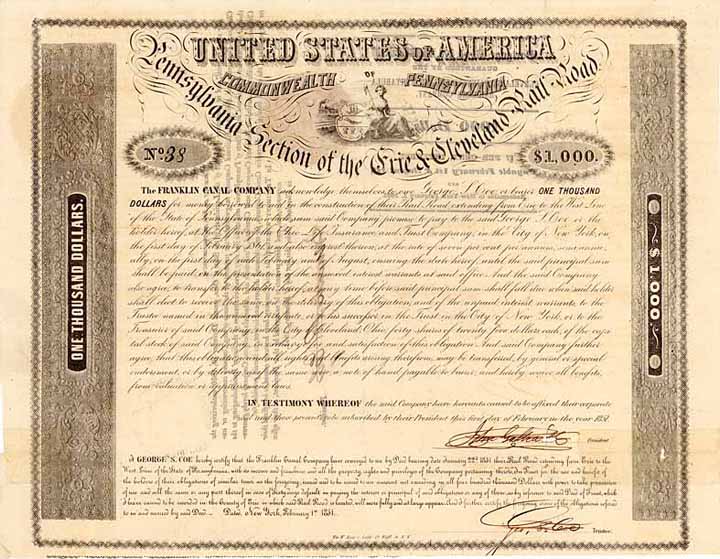 UNITED STATES OF AMERICA
COMMONWEALTH OF PENNSYLVANIA
Pennsylvania Section of the Erie & Cleveland Rail Road
No. 38
$1,000.
The FRANKLIN CANAL COMPANY acknowledge themselves to owe George S. Coe or bearer ONE THOUSAND
DOLLARS for money borrowed to aid in the construction of their Rail Road, extending from Erie to the West Line
of the State of Pennsylvania, which sum said Company promise to pay to the said George S. Coe or the
holder hereof, at the Office of the Ohio Life Insurance and Trust Company, in the City of New York, on
the first day of February and also interest thereon, at the rate of seven per cent per annum, semi-annu-
ally, on the first days of each February and of August, ensuing the date hereof, until the said principal sum
shall be paid, on the presentation of the annexed interest warrants at said office. And the said Company
also agree, to transfer to the holder hereof, at any time before said principal sum shall fall due, when said holder
shall elect to receive the same on the delivery of this obligation, and of the unpaid interest warrants, to the
Trustee named in the certificate, or his successor in the Trust in the City of New York, or to the
Treasurer of said Company, in the City of Cleveland, Ohio, forty shares of twenty five dollars each, of the capi-
tal stock of said Company, in exchange for and satisfaction of this obligation. And said Company further
agree, that this obligation and all rights and benefits arising therefrom, may be transferred, by general or special
endorsment, or by delivery as if the same were a note of hand, payable to bearer, and hereby waive all benefits,
from valuation or appraisment laws.
IN TESTIMONY WHEREOF the said Company have hereunto caused to be affixed their corporate
seal and these presents to be subscribed by their President this first day of February in the year 1851.
President
I GEORGE S. COE hereby certify that the Franklin Canal Company have conveyed to me by Deed bearing date January 22d 1851 their Rail Road extending from Erie to the
West Line of the State of Pennsylvania, with its income and franchise and all the property rights and privileges of the Company pertaining thereto. In Trust for the use and benefit of
the holders of their obligations of similar tenor as the foregoing issued and to be issued to an amount not exceeding in all four hundred thousand Dollars with power to take possession
of and sell the same or any part thereof in case of sixty days default in paying the interest or principal of said obligations or any of them as by reference to said Deed of Trust, which
I have caused to be recorded in the County of Erie in which said Rail Road is located will more fully and at large appear. And I further certify the foregoing one of the obligations referred
to in and secured by said Deed. Dated, New York, February 1st 1851.
Geo. S. Coe
Trustee.
ONE THOUSAND DOLLARS.
$1,000